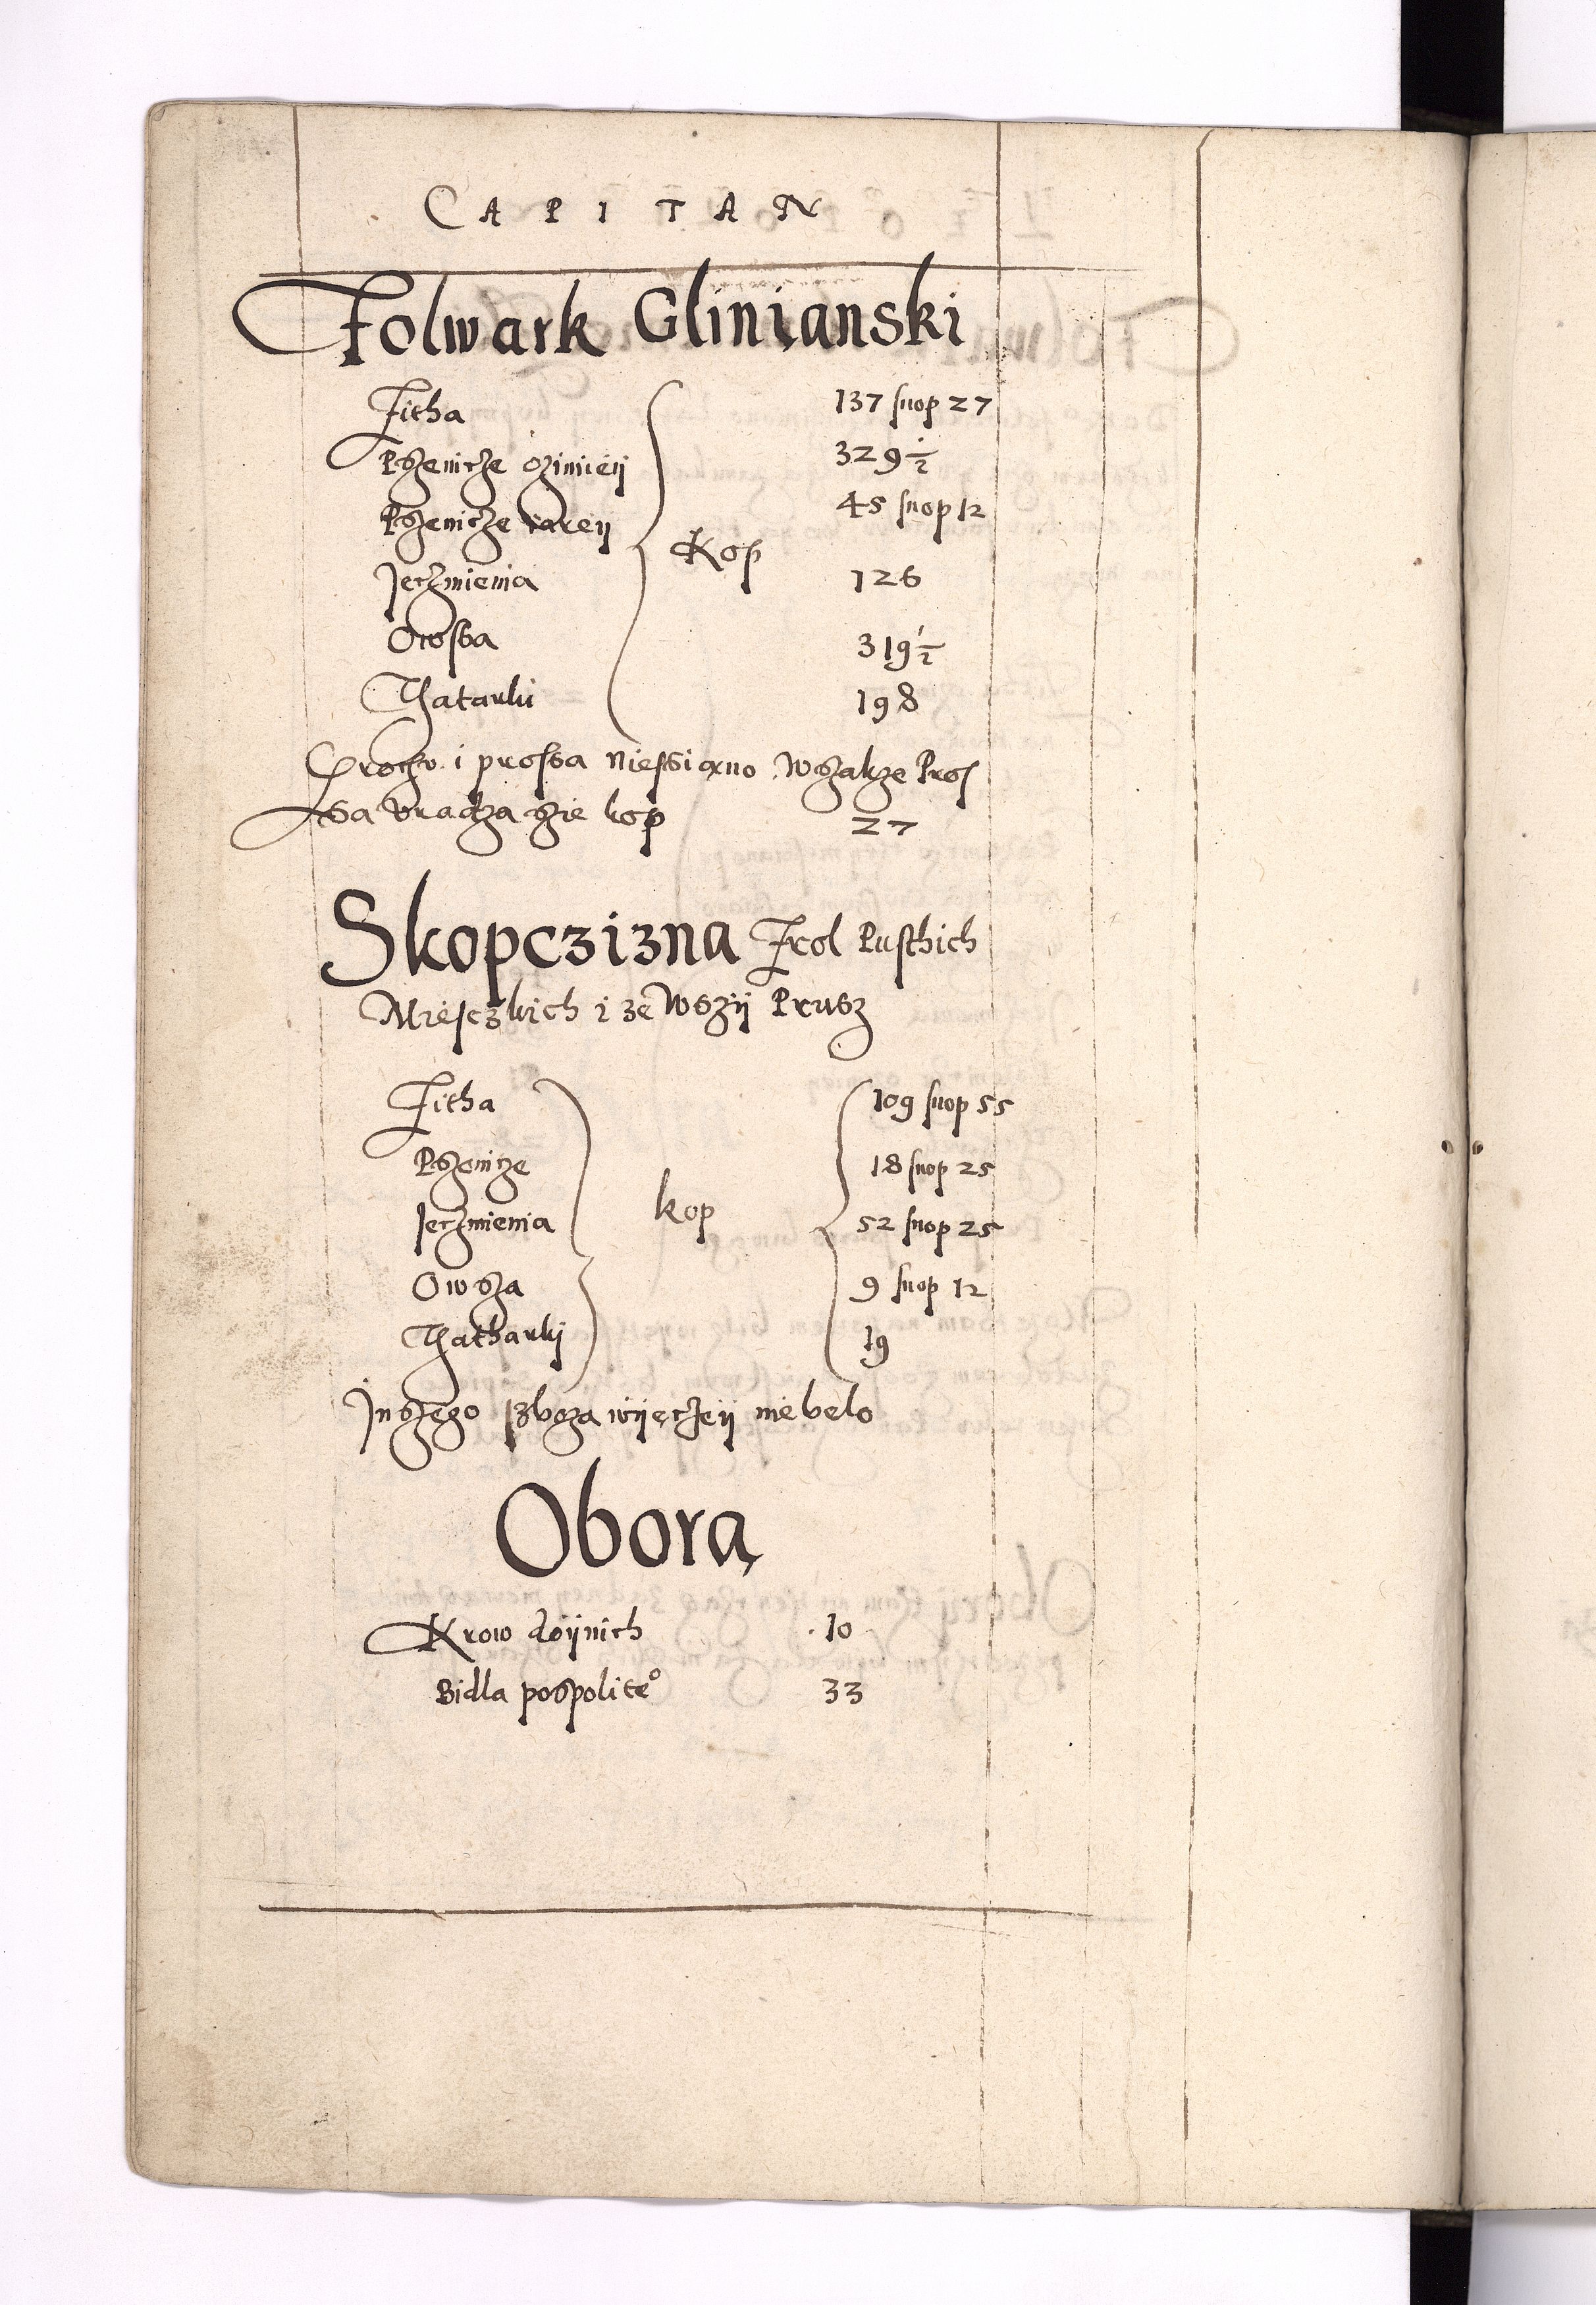 CAPITAN
Folwark Glinianski
Zitha 137 snop 27
Pszenicze ozimieÿ 329 ½
Pszenicze iareÿ 45 snop 12
Kop
Jeczmienia 126
Owssa 319 ½
Thatarki 198
Grochv i prossa niessiano wszakze Pros
sa vradza szie kop 27
Skopczizna Zrol Pusthich
Miejczkich i ze wszÿ Prusz
Zitha 109 snop 55
Pszenicze 18 snop 25
Jeczmienia kop 52 snop 25
Owsza 9 snop 12
Thatharkÿ 19
Jnszego zboza wÿęczeÿ nie belo
Obora
Krow doÿnich 10
Bidla pospolite° 33